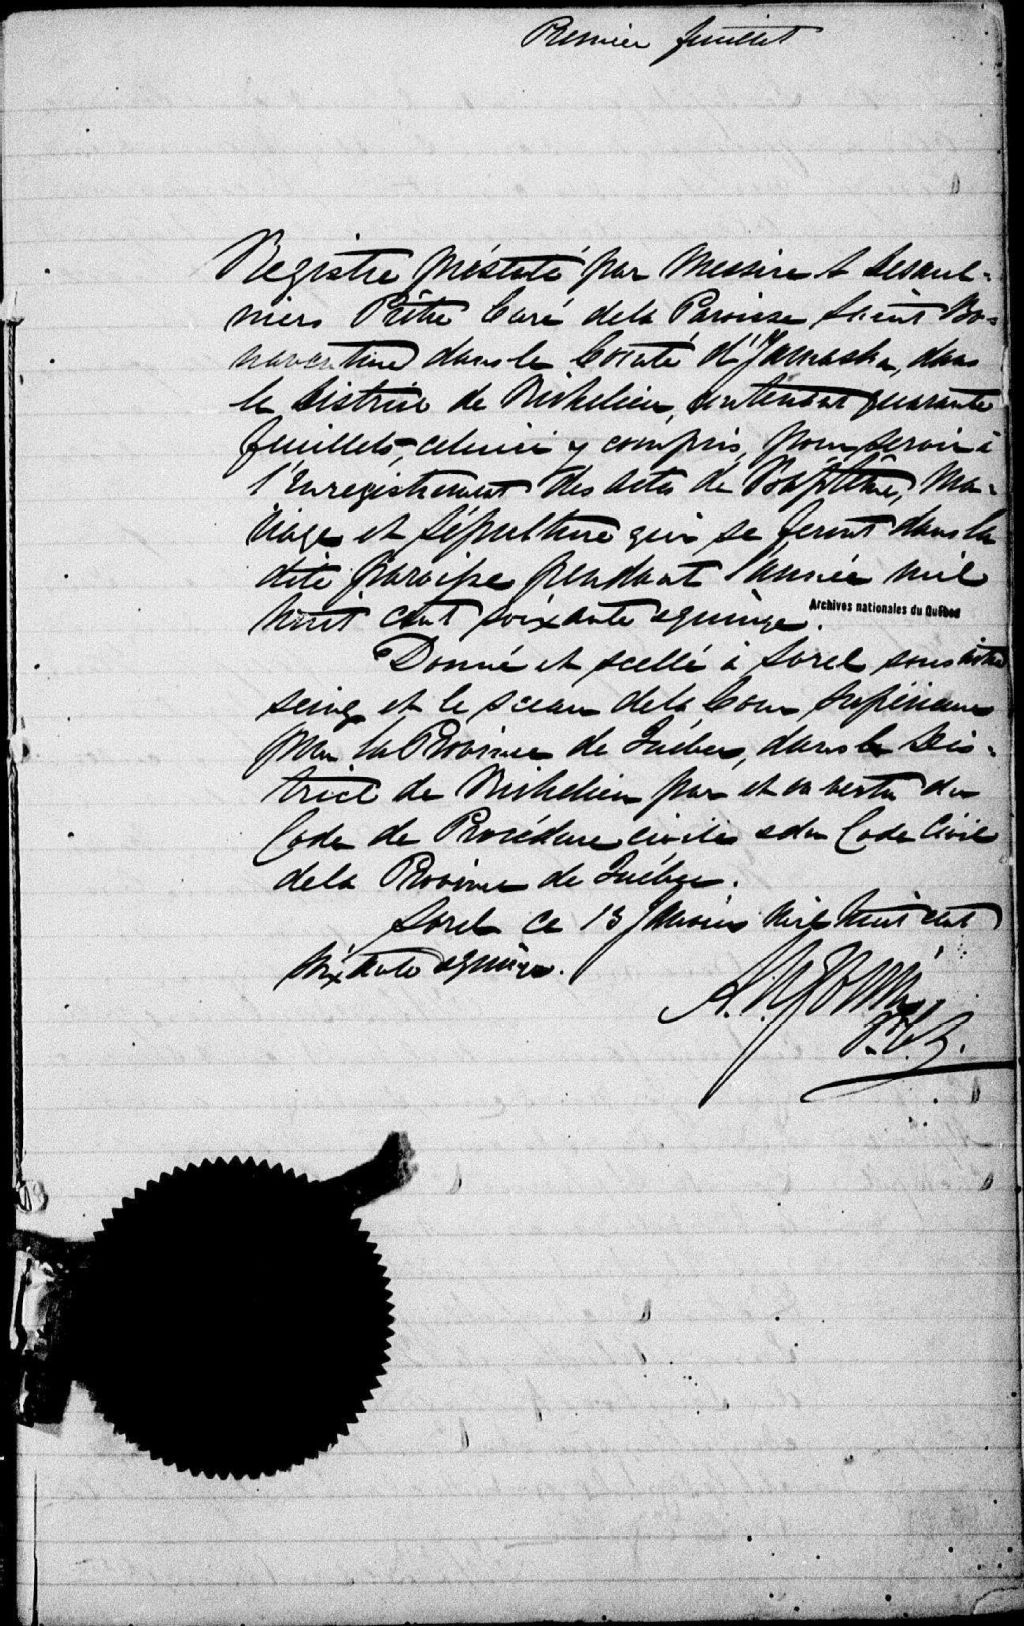 Premier feuillet
Registre présenté par Messire Desaul-
niers Prêtre Curé de la Paroisse Saint Bo-
naventure dans le Comté d'Yamaska, dans
le District de Richelieu, contenant quarante
feuillets, celui ci y compris, pour servir à
l'Enregistrement des actes de Baptême, Ma-
riage et Sépulture qui se feront dans la
dite paroisse pendant l'année mil
huit cent soixante & quinze.
Archives nationales du Québec
Donné et scellé à Sorel sous notre
seing et le sceau de la Cour Supérieure
pour la Province de Québec, dans le Dis-
trict de Richelieu par et en vertu du
Code de Procédure civile & du Code Civil
de la Province de Québec.
Sorel ce 13 Janvier mil huit cent
soixante & quinze.